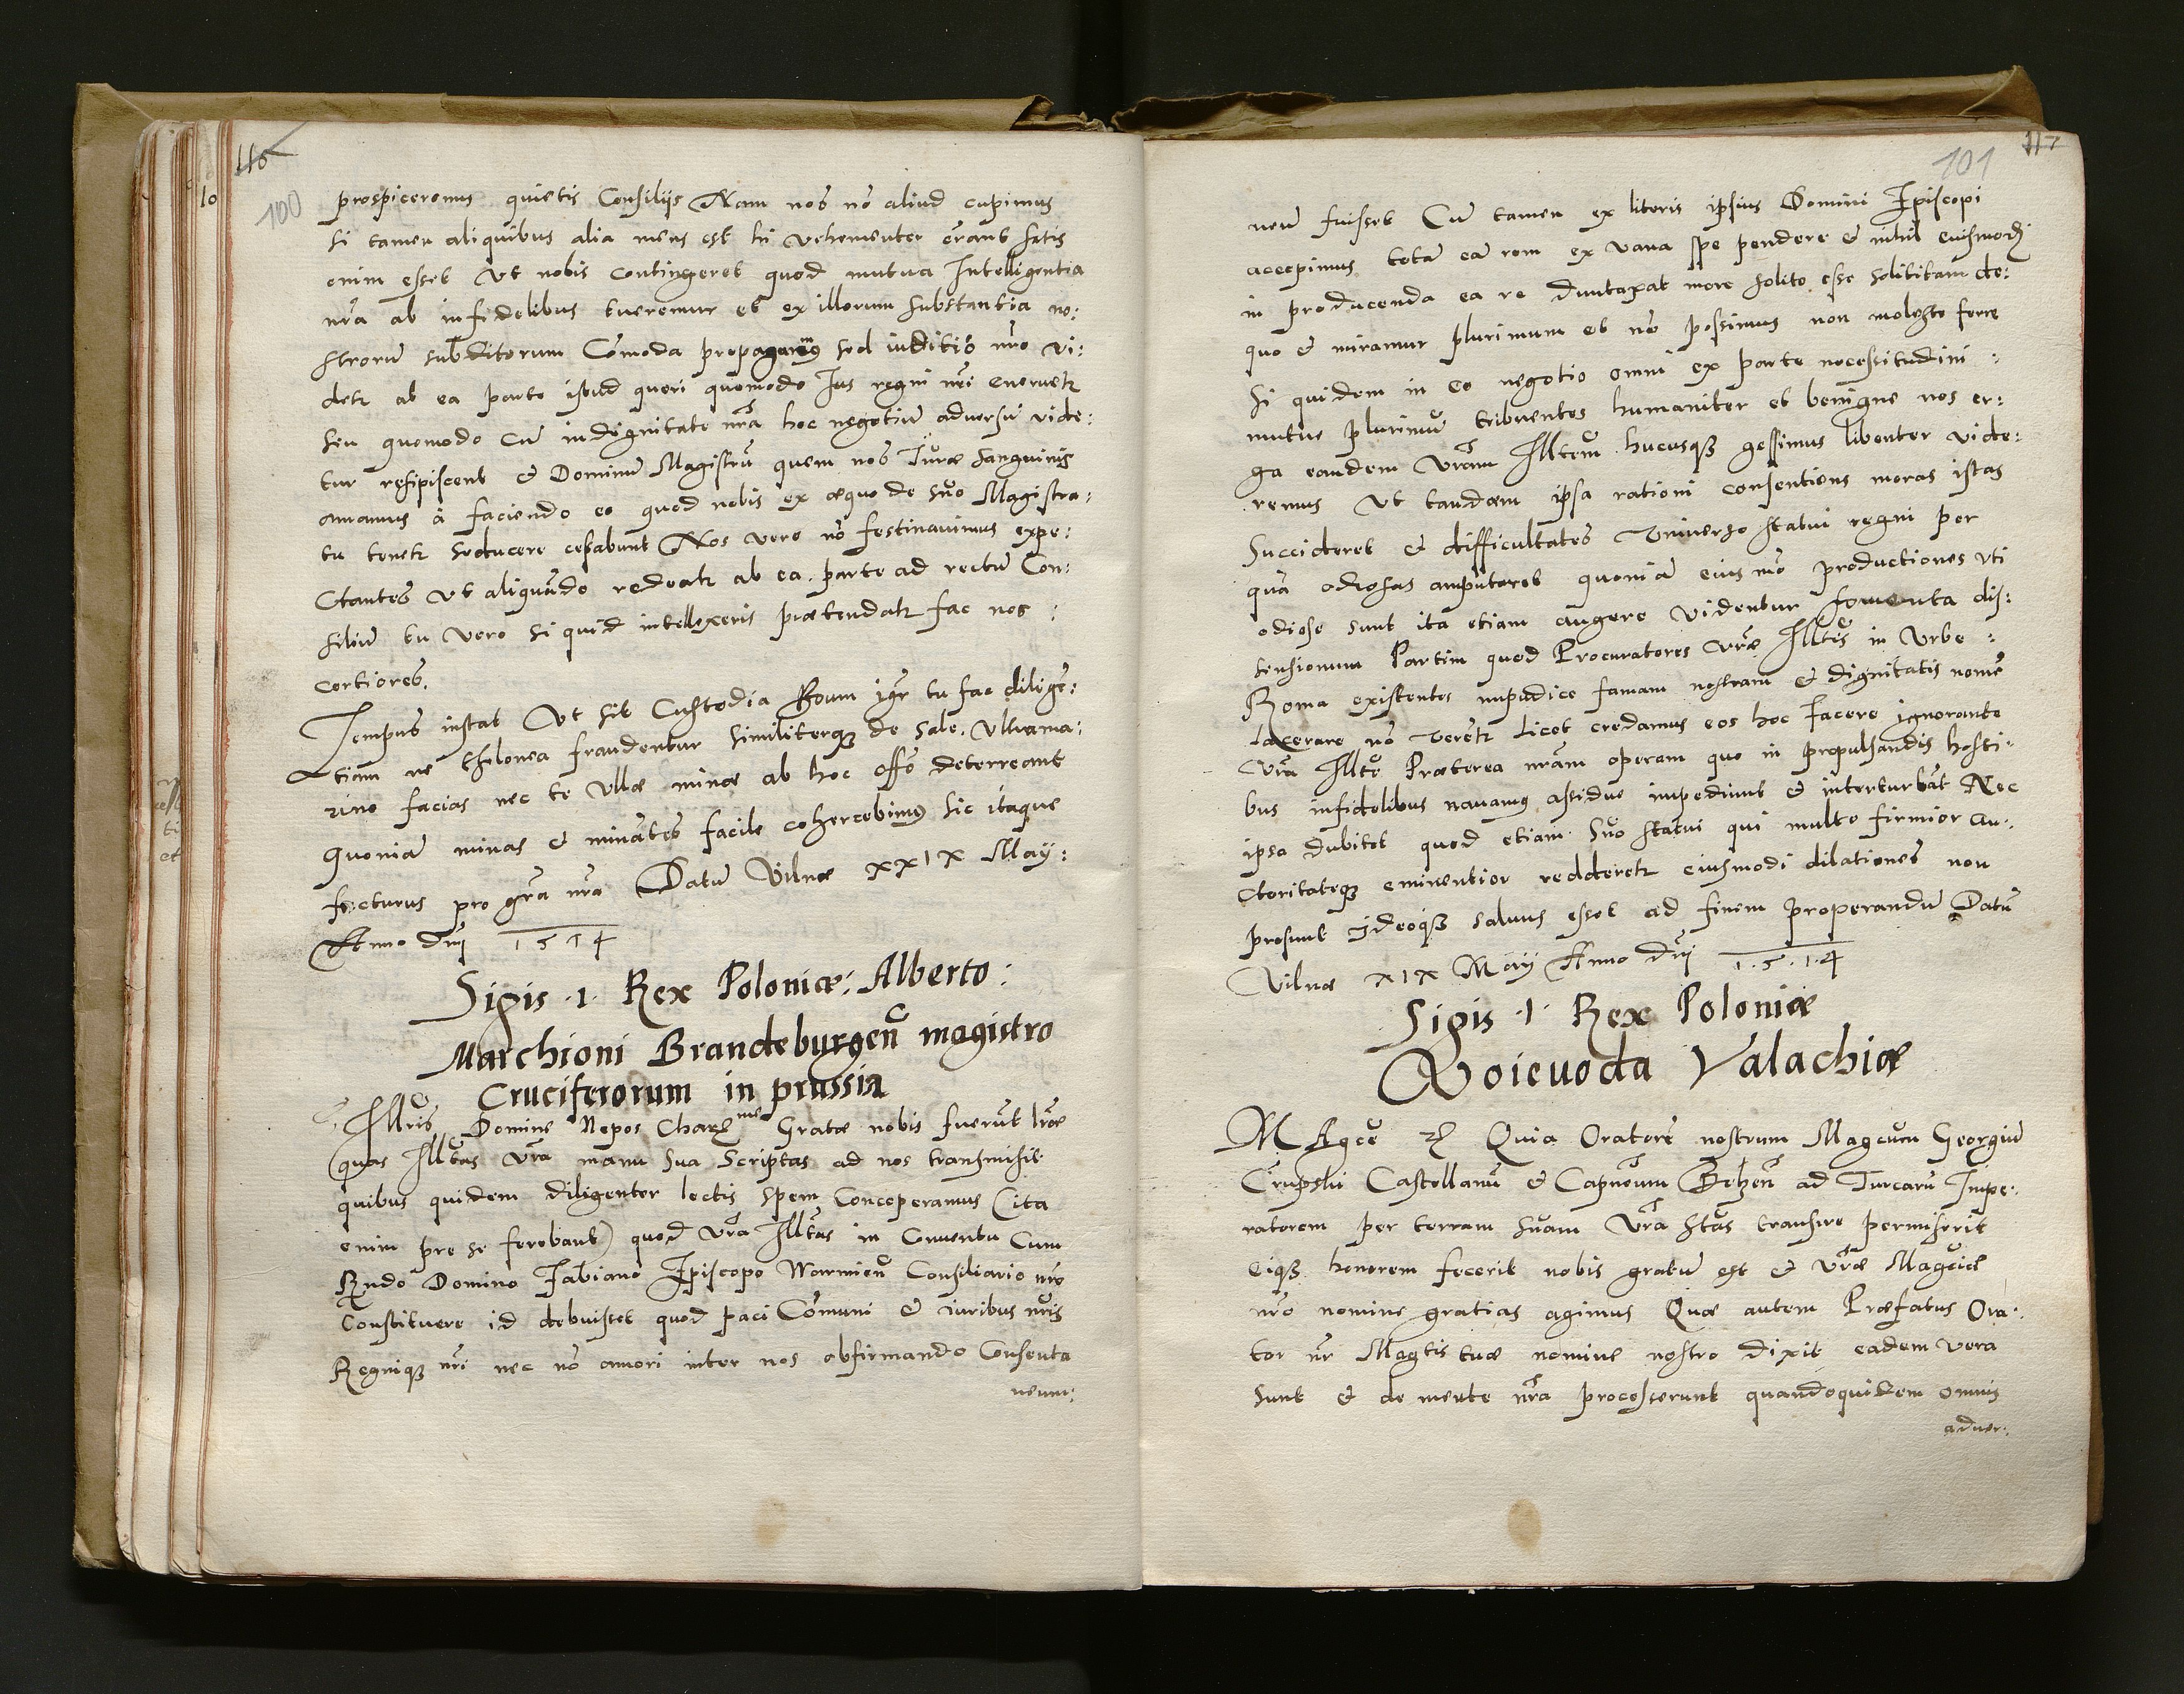 116
100
prospiceremus quietis Consilijs Nam nos nõ aliud cupimus
si tamen aliquibus alia mens est hi vehementer errant satis
enim esset Vt nobis contingeret quod mutua Intelligentia
nr̃a ab infidelibus tueremur et ex illorum substantia no:
strorũ subditorum Cõmoda propagaremus sed iuditiõ nr̃o vi:
detr ab ea parte istud queri quomodo Ius regni nr̃i eneruetr
seu quomodo cũ indignitate nr̃a hoc negotiũ aduersũ vide:
tur resipiscent & Dominũ Magistrũ quem nos Iuræ sanguinis
amamus à faciendo eo quod nobis ex æquo de suo Magistra:
tu tenetr seducere cessabunt Nos vero nõ festinauimus expe:
ctantes Vt aliquãdo redeatr ab ea parte ad rectũ Con:
siliũ tu vero si quid intellexeris prætendatr fac nos:
certiores.
Tempus instat Vt sit Custodia Boum igr̃ tu fac diligẽ:
tiam ne thelonea fraudentur similiterqȝ de sale Vltrama:
rino facias nec te Vllæ minæ ab hoc offõ deterreant
Quoniã minas & minãtes facile cohercebimus Sic itaque
fecturus pro gr̃a nr̃a Datũ Vilnæ XXIX May:
Anno Dnĩ 1514
Sigis .1. Rex Poloniæ: Alberto:
Marchioni Brandeburgeñ magistro
Cruciferorum in prussia
Illris Domine Nepos Charme Gratæ nobis fuerũt lr̃æ
quas Illtas Vr̃a manu sua Scriptas ad nos transmisit
quibus quidem diligenter lectis spem Conceperamus (ita
enim præ se ferebant) quod Vr̃a Illtas in Conuentu Cum
Rndo Domino Fabiano Episcopo Warmieñ Consiliario nr̃o
Constituere id debuisset quod paci Cõmuni & iuribus nr̃is
Regniqȝ nr̃i nec nõ amori inter nos obfirmando Consenta
neum:
117
101
neũ fuisset Cũ tamen ex literis ipsius Domini Episcopi
accepimus totã eã rem ex vana spe pendere & nihil euismodj
in producenda ea re duntaxat more solito esse solititam de:
quo & miramur plurimum et nõ possimus non moleste ferre
Si quidem in eo negotio omni ex parte necessitudini:
mutue plurimũ tribuentes humaniter et benigne nos er:
ga eandem Vr̃am Illtem hucusqȝ gessimus libenter vide:
remus Vt tandem ipsa rationi consentiens moras istas
Succideret & difficultates Vniuerso statui regni per
quã odiosas amputaret quoniã eiusmõ productiones vti
odiose sunt ita etiam augere videntur fomenta dis:
sensionum Partim quod Procuratores Vr̃æ Illtis in Vrbe:
Roma existentes impudice famam nostram & dignitatis nomẽ
lacerare nõ verẽtr Licet credamus eos hoc facere ignorante
Vr̃a Illte Præterea nr̃am operam quo in propulsandis hosti:
bus infidelibus nauamus assidue impediunt & interturbãt Nec
ipsa dubitet quod etiam suo statui qui multo firmior au:
ctoritateqȝ eminentior redderetr eiusmodi dilationes non
prosunt Ideoqȝ saluus esset ad finem properandũ Datũ
Vilnæ XIX May Anno Dnĩ 1.5.1.4
Sigis .1. Rex Poloniæ
Voieuoda Valachiæ
MAgce Quia Oratorẽ nostrum Magcum Georgiũ
Crupski Castellanũ & Capneum Belzeñ ad Turcarũ Impe:
ratorem per terram suam Vr̃a Stas transire permiserit
eiqȝ honorem fecerit nobis gratũ est & Vr̃æ Magciæ
nr̃o nomine gratias agimus Quæ autem Præfatus Ora:
tor nr̃ Magtis tuæ nomine nostro dixit eadem vera
sunt & de mente nr̃a processerunt quandoquidem omnis
aduer: